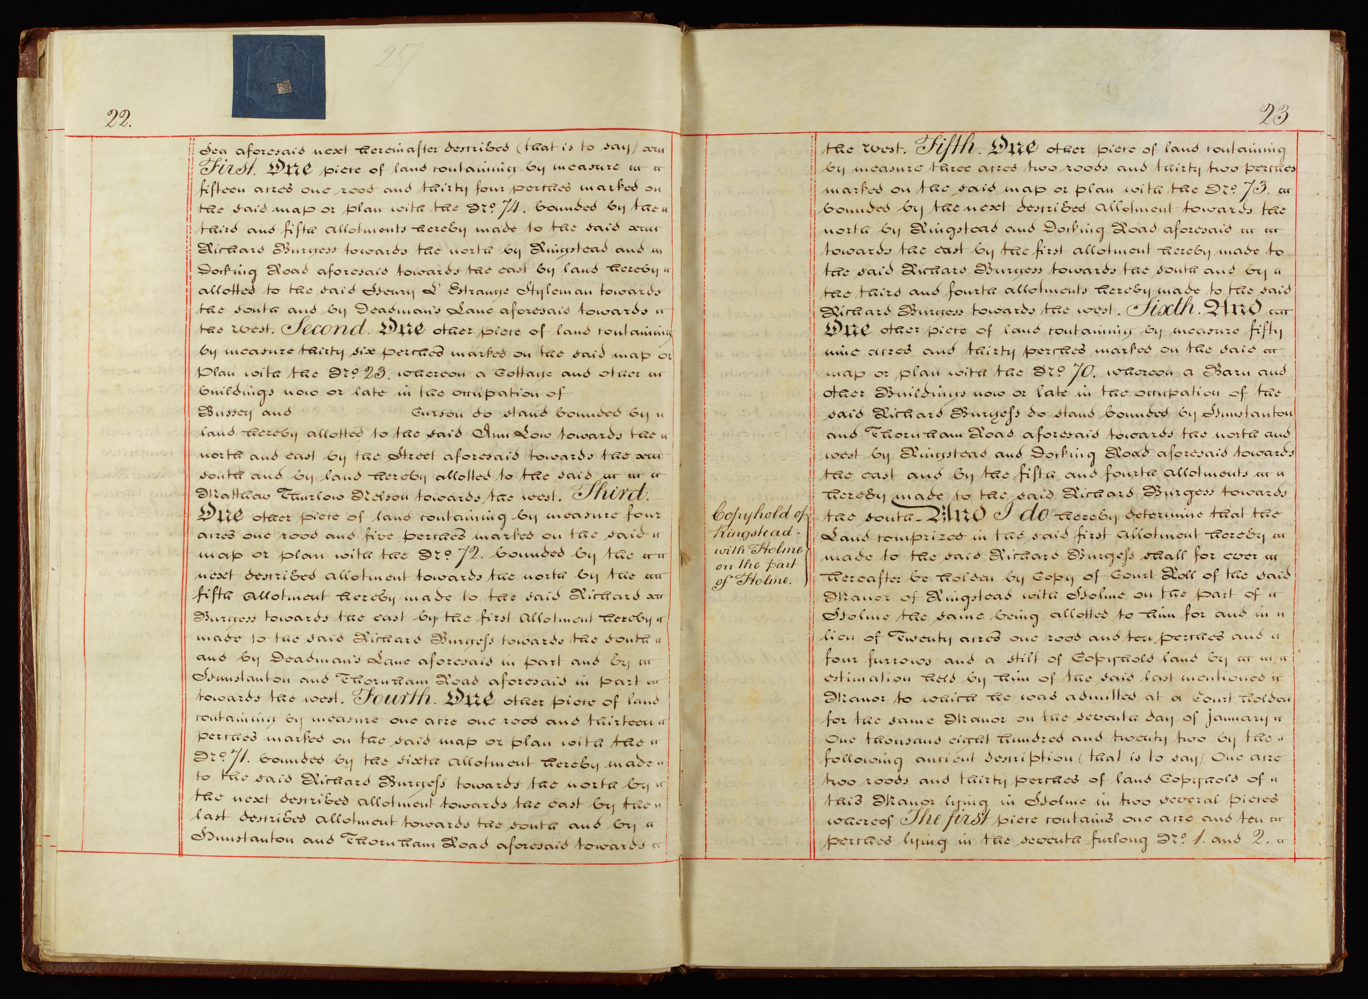 27
22.
Sea aforesaid next hereinafter described (that is to say)
First. One piece of land containing by measure
fifteen acres one rood and thirty four perches marked on
the said map or plan with the No. 74. bounded by the
third and fifth allotments hereby made to the said
Richard Burgess towards the north by Ringstead and
Docking Road aforesaid towards the east by land hereby
allotted to the said Henry L'Estrange Styleman towards
the south and by Deadman's Lane aforesaid towards
the west. Second. One other piece of land containing
by measure thirty six perches marked on the said map or
Plan with the No. 23. whereon a Cottage and other
buildings now or late in the occupation of
Bussey and Curson do stand bounded by
land hereby allotted to the said Ann Low towards the
north and east by the Street aforesaid towards the
south and by land hereby allotted to the said
Matthew Thurlow Nelson towards the west. Third.
One other piece of land containing by measure four
acres one rood and five perches marked on the said
map or plan with the No. 72. bounded by the
next described allotment towards the north by the
fifth allotment hereby made to the said Richard
Burgess towards the east by the first allotment hereby
made to the said Richard Burgess towards the south
and by Deadman's Lane aforesaid in part and by
Hunstanton and Thornham Road aforesaid in part
towards the west. Fourth. One other piece of land
containing by measure one acre one rood and thirteen
perches marked on the said map or plan with the
No. 71. bounded by the sixth allotment hereby made
to the said Richard Burgess towards the north by
the next described allotment towards the east by the
last described allotment towards the south and by
Hunstanton and Thornham Road aforesaid towards
23
the west. Fifth. One other piece of land containing
by measure three acres two roods and thirty two perches
marked on the said map or plan with the No. 73.
bounded by the next described allotment towards the
north by Ringstead and Docking Road aforesaid
towards the east by the first allotment hereby made to
the said Richard Burgess towards the south and by
the third and fourth allotments hereby made to the said
Richard Burgess towards the west. Sixth. And
One other piece of land containing by measure fifty
nine acres and thirty perches marked on the said
map or plan with the No. 70. whereon a Barn and
other Buildings now or late in the occupation of the
said Richard Burgess do stand bounded by Hunstanton
and Thornham Road aforesaid towards the north and
west by Ringstead and Docking Road aforesaid towards
the east and by the fifth and fourth allotments
hereby made to the said Richard Burgess towards
the south. And I do hereby determine that the
Land comprized in the said first allotment hereby
made to the said Richard Burgess shall for ever
hereafter be holden by Copy of Court Roll of the said
Manor of Ringstead with Holme on the part of
Holme the same being allotted to him for and in
lieu of Twenty acres one rood and ten perches and
four furrows and a stilt of Copyhold land by
estimation held by him of the said last mentioned
Manor to which he was admitted at a Court holden
for the same Manor on the seventh day of January
One thousand eight hundred and twenty two by the
following ancient description (that is to say) One acre
two roods and thirty perches of land Copyhold of
this Manor lying in Holme in two several pieces
whereof The first piece contains one acre and ten
perches lying in the seventh furlong No. 1. and 2.
Copyhold of
Ringstead
with Holme
on the part
of Holme.